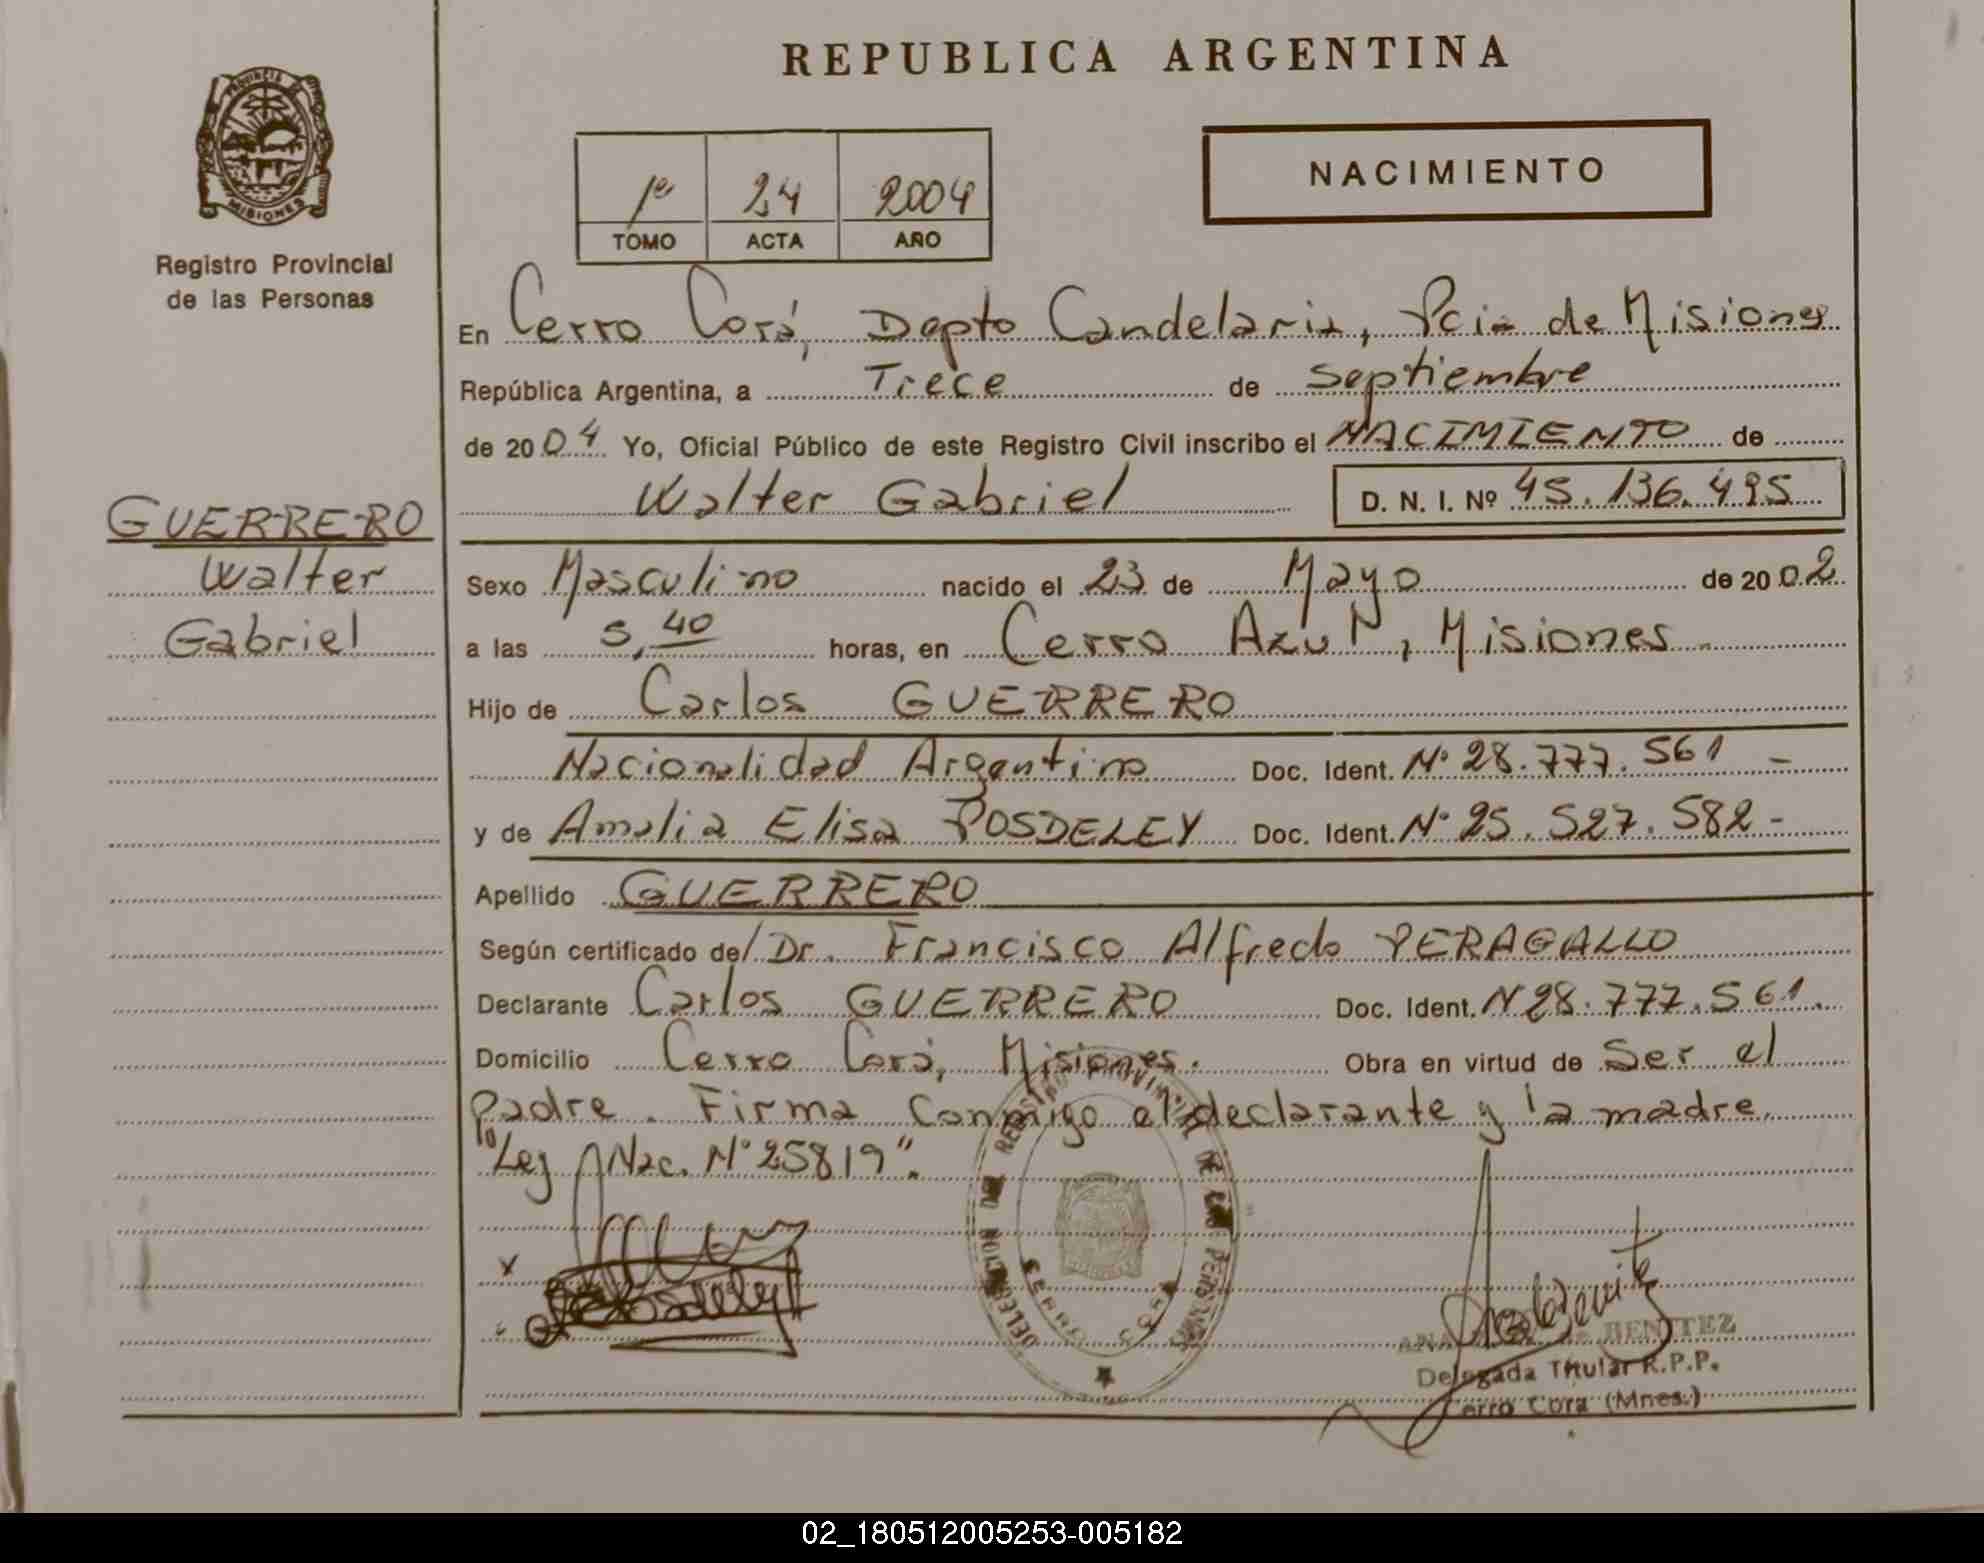 REPUBLICA ARGENTINA
PROVINCIA DE
MISIONES
Registro Provincial
de las Personas
1º 24 2004
TOMO ACTA AÑO
NACIMIENTO
En Cerro Corá, Depto Candelaria, Pcia de Misiones
República Argentina, a Trece de Septiembre
de 2004 Yo, Oficial Público de este Registro Civil inscribo el NACIMIENTO de
Walter Gabriel D. N. I. Nº 45.136.495
GUERRERO
Walter
Gabriel
Sexo Masculino nacido el 23 de Mayo de 2002
a las 5,40 horas, en Cerro Azul, Misiones
Hijo de Carlos GUERRERO
Nacionalidad Argentina Doc. Ident. Nº 28.777.561 -
y de Amalia Elisa POSDELEY Doc. Ident. Nº 25.527.582-
Apellido GUERRERO
Según certificado de/Dr. Francisco Alfredo PERAGALLO
Declarante Carlos GUERRERO Doc. Ident. N 28.777.561.
Domicilio Cerro Corá, Misiones. Obra en virtud de Ser el
Padre. Firma Conmigo el declarante y la madre.
"Ley Nac. Nº 25819".
REGISTRO PROVINCIAL DE LAS PERSONAS
ANA BENITEZ
Delegada Titular R.P.P.
Cerro Cora (Mnes.)
02_180512005253-005182